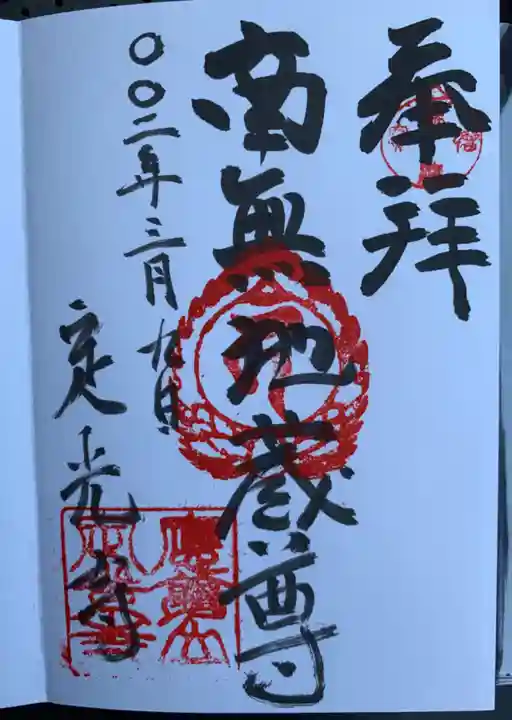 奉拝
南無地蔵尊
〇〇二年三月九日
定光寺